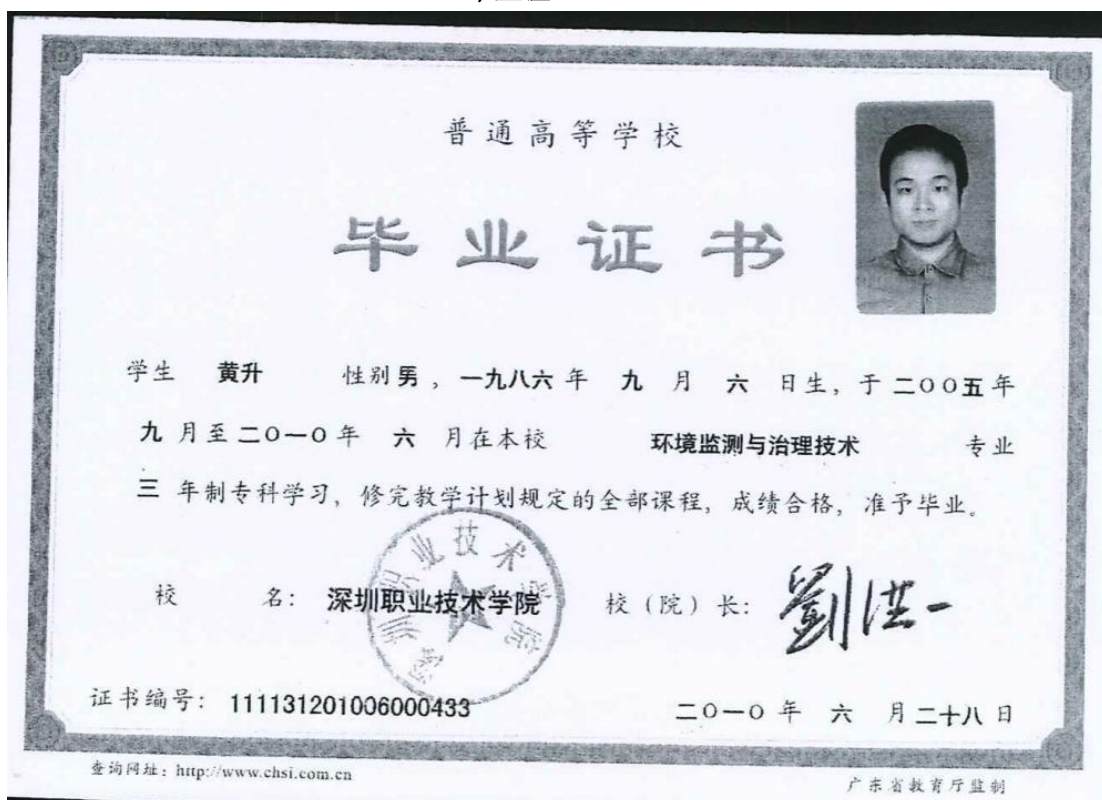 普通高等学校
毕业证书
学生 黄升 性别 男，一九八六年 九 月 六 日生，于二〇〇五年
九 月至二〇一〇年 六 月在本校 环境监测与治理技术 专业
三 年制专科学习，修完教学计划规定的全部课程，成绩合格，准予毕业。
深圳职业技术学院
校 名：深圳职业技术学院 校（院）长：劉洪一
证书编号：111131201006000433 二〇一〇年 六 月二十八日
查询网址：http://www.chsi.com.cn 广东省教育厅监制